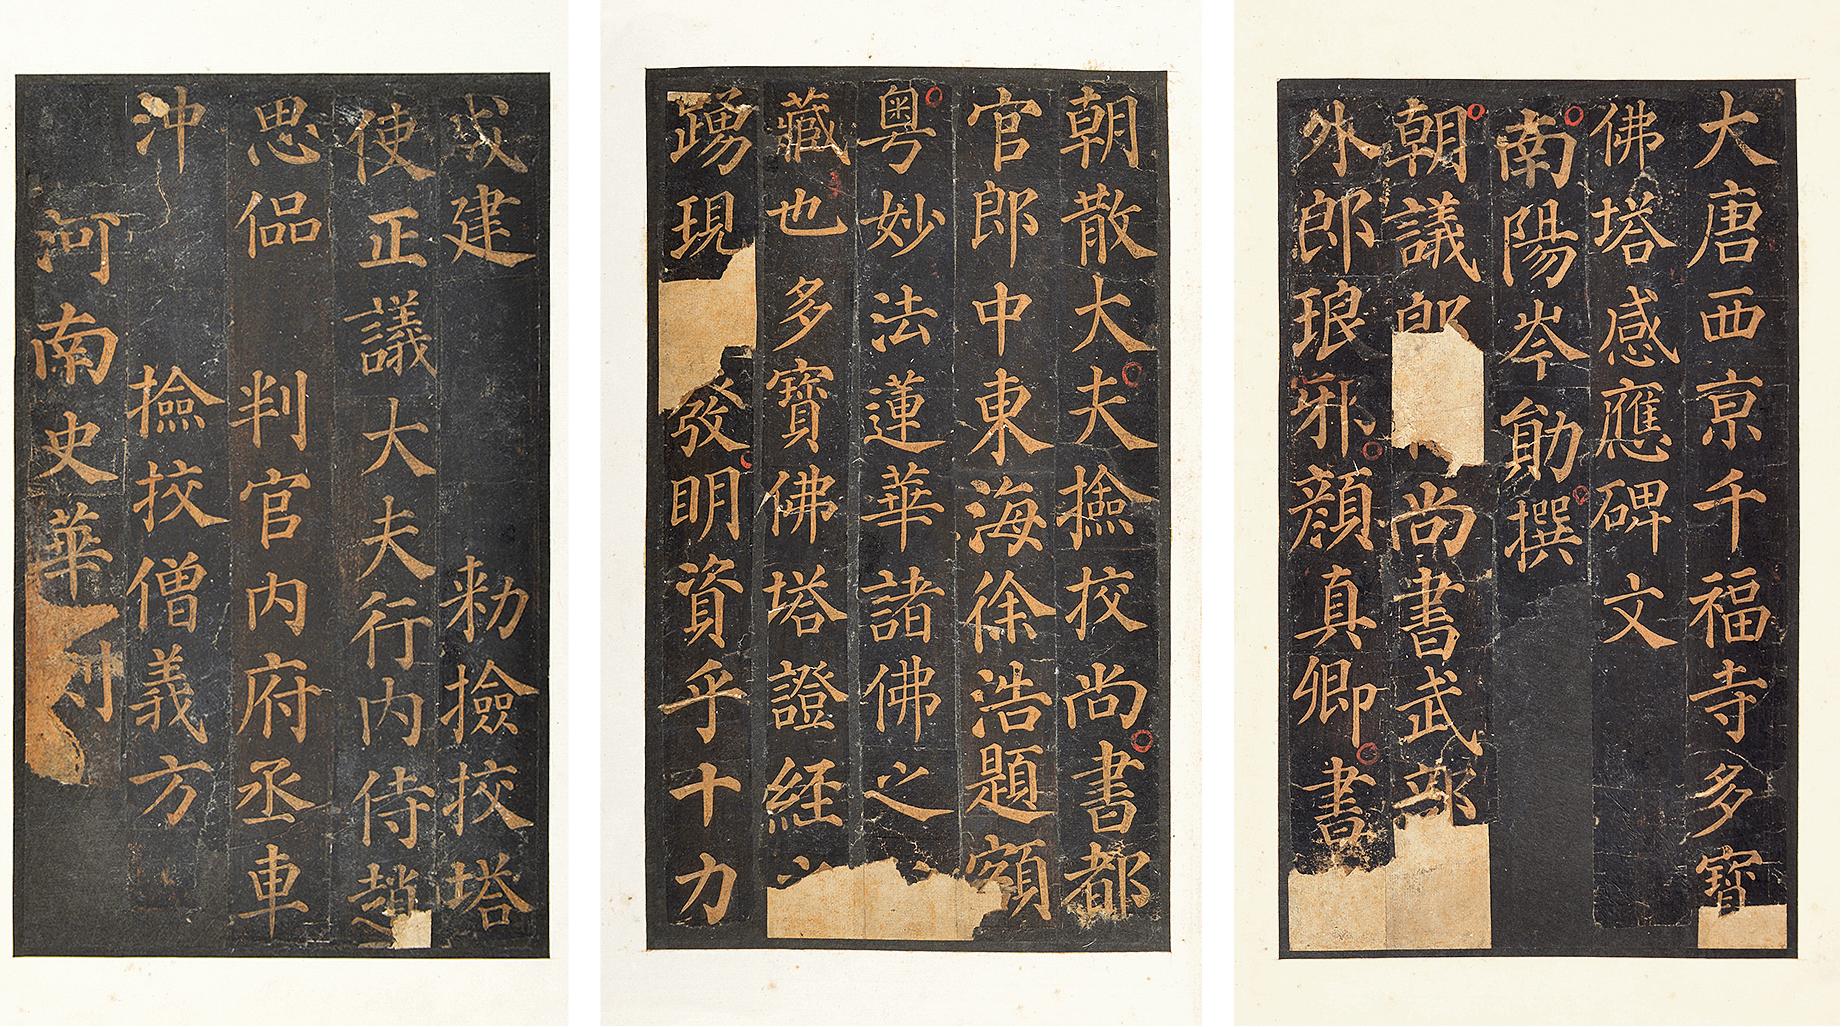 大唐西京千福寺多寶
佛塔感應碑文
南陽岑勛撰
朝議郎尚書武部
外郎琅邪顏真卿書
朝散大夫撿挍尚書都
官郎中東海徐浩題額
粵妙法蓮華諸佛之
藏也多寶佛塔證經
踴現發明資乎十力
成建勑撿挍塔
使正議大夫行內侍趙
思偘判官內府丞車
沖撿挍僧義方
河南史華刻